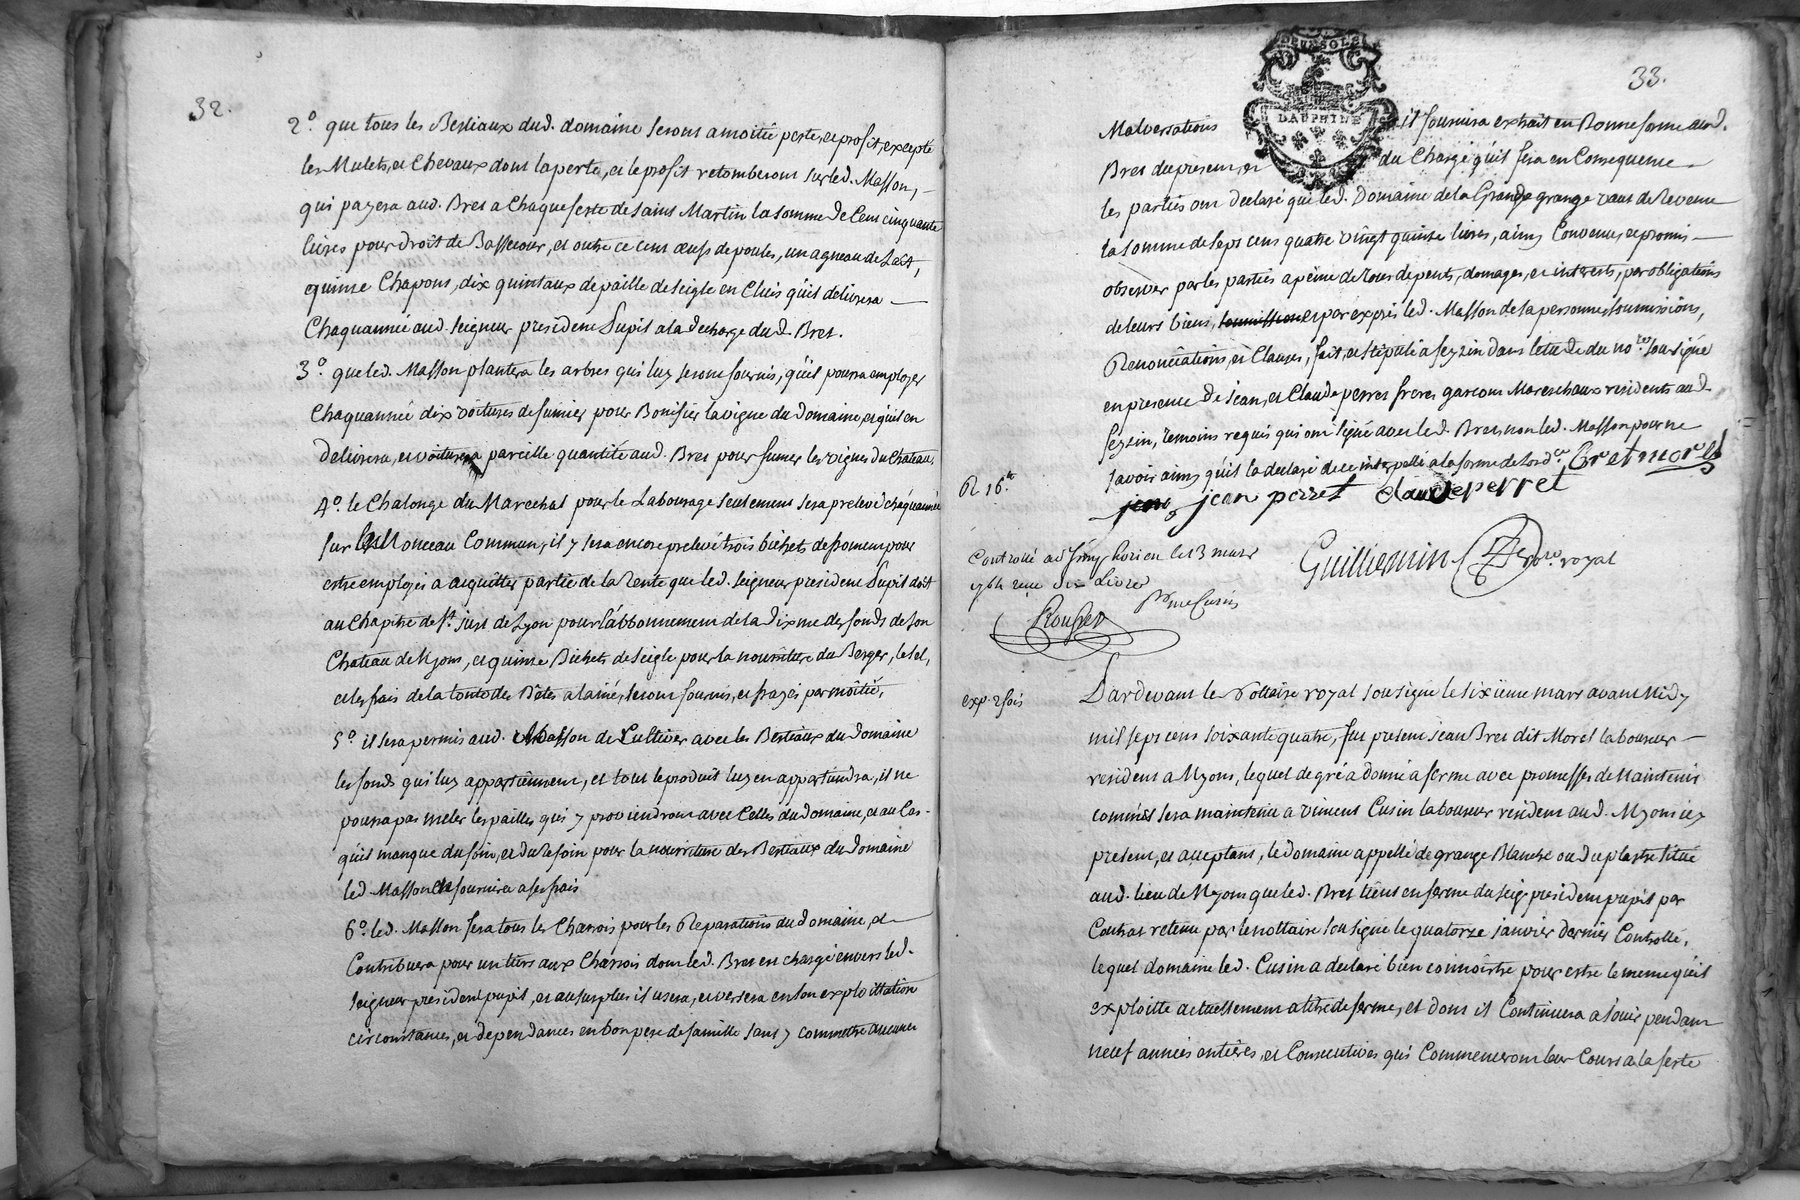 32.
2.° que tous les Bestiaux dud. domaine seront a moitié perte, et profit, excepté
les Mulets, et Chevaux dont la perte, et le profit retomberont sur led. Masson,
qui payera aud. Bret a Chaque feste de saint Martin la somme de Cent cinquante
livres pour droit de Bassecour, et outre ce cent œufs de poules, un agneau de Lait,
quinze Chapons, dix quintaux de paille de seigle en Cluis qu'il delivrera
Chaquannée aud. seigneur president Pupil a la decharge dud. Bret.
3.° que led. Masson plantera les arbres qui luy seront fournis, qu'il pourra employer
Chaquannée dix voitures de fumier pour Bonifier la vigne du domaine, et qu'il en
delivrera, et voiturera pareille quantité aud. Bret pour fumer les vignes du Chateau.
4.° le Chalonge du Marechal pour le Labourage seulement sera prelevé chaquannée
sur le Monceau Commun, il y sera encore prelevé trois bichets de froment pour
estre employés a acquitter partie de la rente que led. seigneur president Pupil doit
au Chapitre de St. just de Lyon pour l'abbonnement de la dixme des fonds de son
Chateau de Myons, et quinze Bichets de seigle pour la nourriture du Berger, le sel,
et les frais de la tonte des Bêtes a lainé, seront fournis, et frayés par moitié.
5.° il sera permis aud. Masson de Cultiver avec les Bestiaux du domaine
les fonds qui luy appartiennent, et tout le produit luy en appartiendra, il ne
pourra pas meler les pailles qui y proviendront avec Celles du domaine, et au Cas
qu'il manque du foin, et du resoin pour la nourriture des Bestiaux du domaine
led. Masson en fournira a ses frais
6.° led. Masson fera tous les Charrois pour les Reparations du domaine, et
Contribuera pour un tiers aux Charrois dont led. Bret en chargé envers led.
seigneur president pupil, et au surplus il usera, et versera en son exploittation
circonstances, et dependances en bon pere de famille sans y commettre aucunes
33.
DEUX SOLS
DAUPHINE
Malversations il fournira extrait en Bonne forme aud.
Bret du present, et du Chargé qu'il fera en Consequence
les parties ont declaré que led. Domaine de la Grande grange vaut de Revenu
la somme de sept cens quatre vingt quinze livres, ainsy Convenu, et promis
observer par les parties a peine de tous depents, domages, et interests, par obligations
de leurs biens, soumissions et par exprés led. Masson de sa personne, soumissions,
Renonciations, et Clauses, fait, et stipulé a feyzin dans l'etude du no.re sousigné
en presence de Jean, et Claude perret freres garcons Mareschaux residents aud.
feyzin, temoins requis qui ont signé avec led. Bret, non led. Masson pour ne
savoir ainsy qu'il l'a declaré de ce interpellé a la forme de l'ord.ce Bret morel
R 16.
jean perret claude perret
Guilliemin no.re royal
Controllé a St Simphorien le 13 mars
1764 reçu dix Livres
Rousset
exp. 2 fois
Pardevant le Nottaire royal sousigné le sixième mars avant Midy
mil sept cens soixante quatre, fut present Jean Bret dit Morel laboureur
resident a Myons, lequel de gré a donné a ferme avec promesse de Maintenir
comme sera maintenu a vincent Cusin laboureur resident aud. Myons icy
present, et acceptant, le domaine appellé de grange Blanche ou du plastre situé
aud. lieu de Myons que led. Bret tient en ferme du seig. president pupil par
Contrat retenu par le nottaire sousigné le quatorze janvier dernier Controllé,
lequel domaine led. Cusin a declaré bien connoistre pour estre le meme qu'il
exploitte actuellement a titre de ferme, et dont il Continuera a jouir pendant
neuf années entières, et Consecutives qui Commenceront leur Cours a la feste